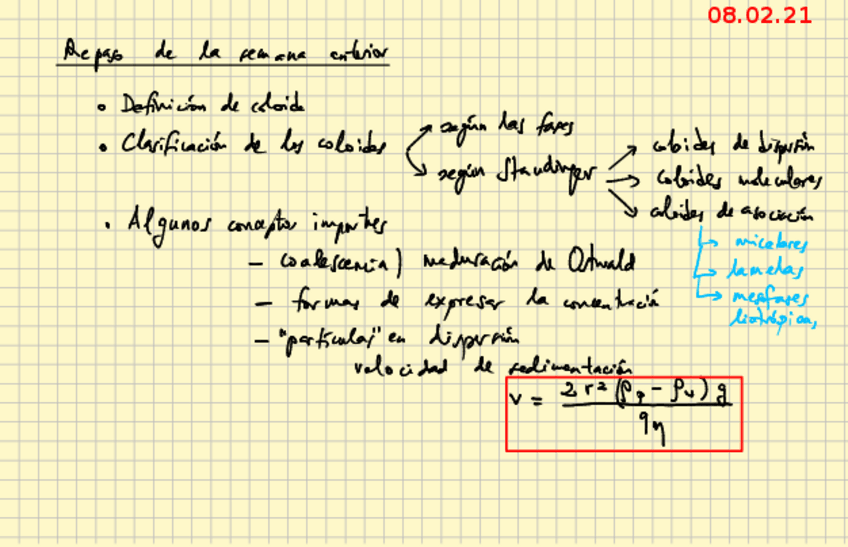 08.02.21
Repaso de la semana anterior
• Definición de coloide
• Clasificación de los coloides
según las fases
según Staudinger
coloides de dispersión
coloides moleculares
coloides de asociación
micelares
lamelas
mesofases
liotrópicas
• Algunos conceptos importes
- coalescencia / maduración de Ostwald
- formas de expresar la concentración
- "partículas" en dispersión
velocidad de sedimentación
v = 2 r² (ρp - ρv) g / 9η